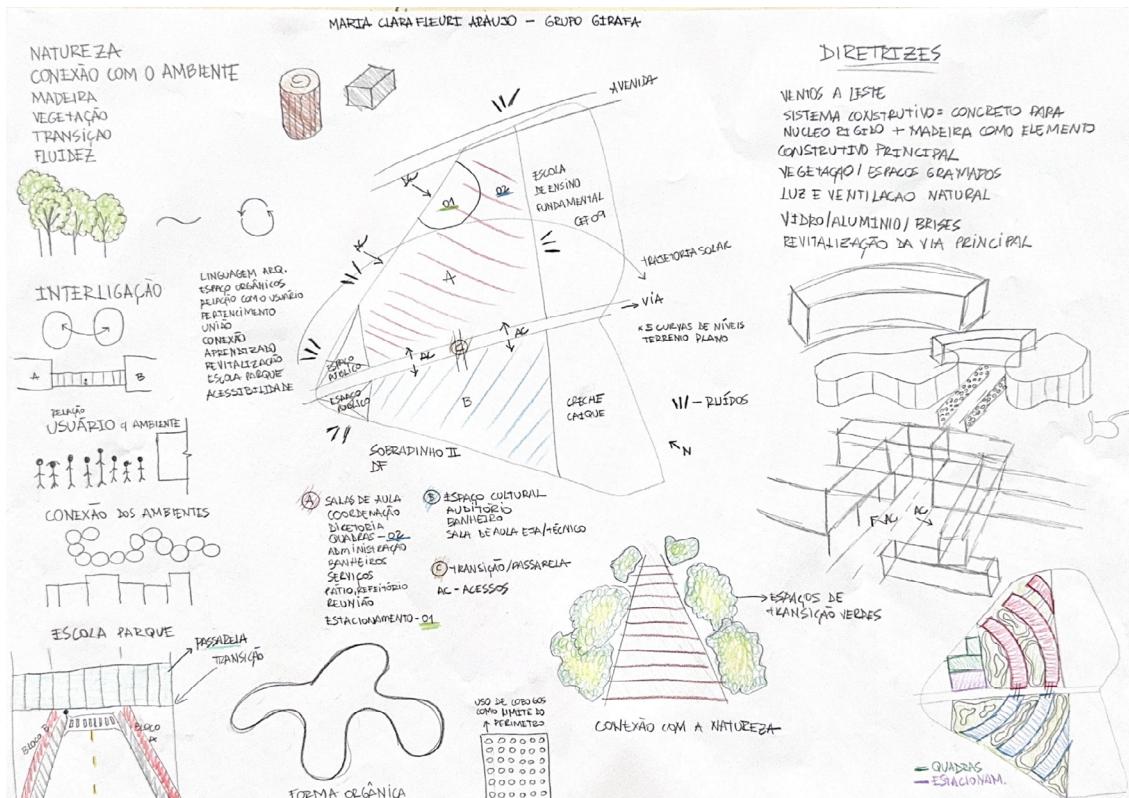 MARIA CLARA FLEURI ARAUJO – GRUPO GIRAFA
NATUREZA
CONEXÃO COM O AMBIENTE
MADEIRA
VEGETAÇÃO
TRANSIÇÃO
FLUIDEZ
INTERLIGAÇÃO
A
B
RELAÇÃO
USUÁRIO q AMBIENTE
CONEXÃO DOS AMBIENTES
ESCOLA PARQUE
PASSARELA
TRANSIÇÃO
BLOCO B
BLOCO A
LINGUAGEM ARQ.
ESPAÇO ORGÂNICOS
RELAÇÃO COM O USUÁRIO
PERTENCIMENTO
UNIÃO
CONEXÃO
APRENDIZADO
REVITALIZAÇÃO
ESCOLA PARQUE
ACESSIBILIDADE
AVENIDA
AC
01
02
ESCOLA
DE ENSINO
FUNDAMENTAL
CEF 09
AC
A
TRAJETORIA SOLAR
VIA
AC
AC
C
ESPAÇO
PÚBLICO
ESPAÇO
PÚBLICO
B
CRECHE
CAIQUE
× 5 CURVAS DE NÍVEIS
TERRENO PLANO
– RUÍDOS
N
SOBRADINHO II
DF
A SALAS DE AULA
COORDENAÇÃO
DIRETORIA
QUADRAS – 02
ADMINISTRAÇÃO
BANHEIROS
SERVIÇOS
PÁTIO, REFEITÓRIO
REUNIÃO
ESTACIONAMENTO – 01
B ESPAÇO CULTURAL
AUDITÓRIO
BANHEIRO
SALA DE AULA EJA/TÉCNICO
C TRANSIÇÃO/PASSARELA
AC – ACESSOS
ESPAÇOS DE
TRANSIÇÃO VERDES
CONEXÃO COM A NATUREZA
FORMA ORGÂNICA
USO DE COBOGOS
COMO LIMITE DO
PERIMETRO
DIRETRIZES
VENTOS A LESTE
SISTEMA CONSTRUTIVO = CONCRETO PARA
NUCLEO RIGIDO + MADEIRA COMO ELEMENTO
CONSTRUTIVO PRINCIPAL
VEGETAÇÃO/ESPAÇOS GRAMADOS
LUZ E VENTILACAO NATURAL
VIDRO/ALUMINIO/BRISES
REVITALIZAÇÃO DA VIA PRINCIPAL
AC
AC
QUADRAS
ESTACIONAM.